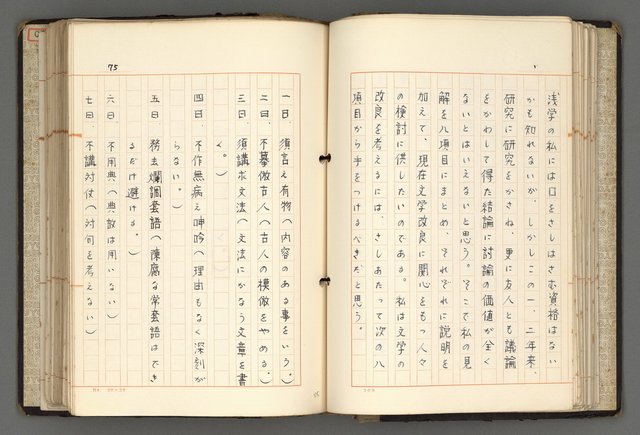 浅学の私には口をさしはさむ資格はない
かも知れないが、しかしこの一、二年来、
研究に研究をかさね、更に友人とも議論
をかわして得た結論に討論の価値が全く
ないとはいえないと思う。そこで私の見
解を八項目にまとめ、それぞれに説明を
加えて、現在文学改良に関心をもつ人々
の検討に供したいのである。私は文学の
改良を考えるには、さしあたって次の八
項目から手をつけるべきだと思う。
75
一曰、須言之有物(内容のある事をいう。)
二曰、不摹倣古人(古人の模倣をやめる。)
三曰、須講求文法(文法にかなう文章を書
く。)
四曰、不作無病之呻吟(理由もなく深刻が
らない。)
五曰、務去爛調套語(陳腐な常套語はでき
るだけ避ける。)
六曰、不用典(典故は用いない)
七曰、不講対仗(対句を考えない)